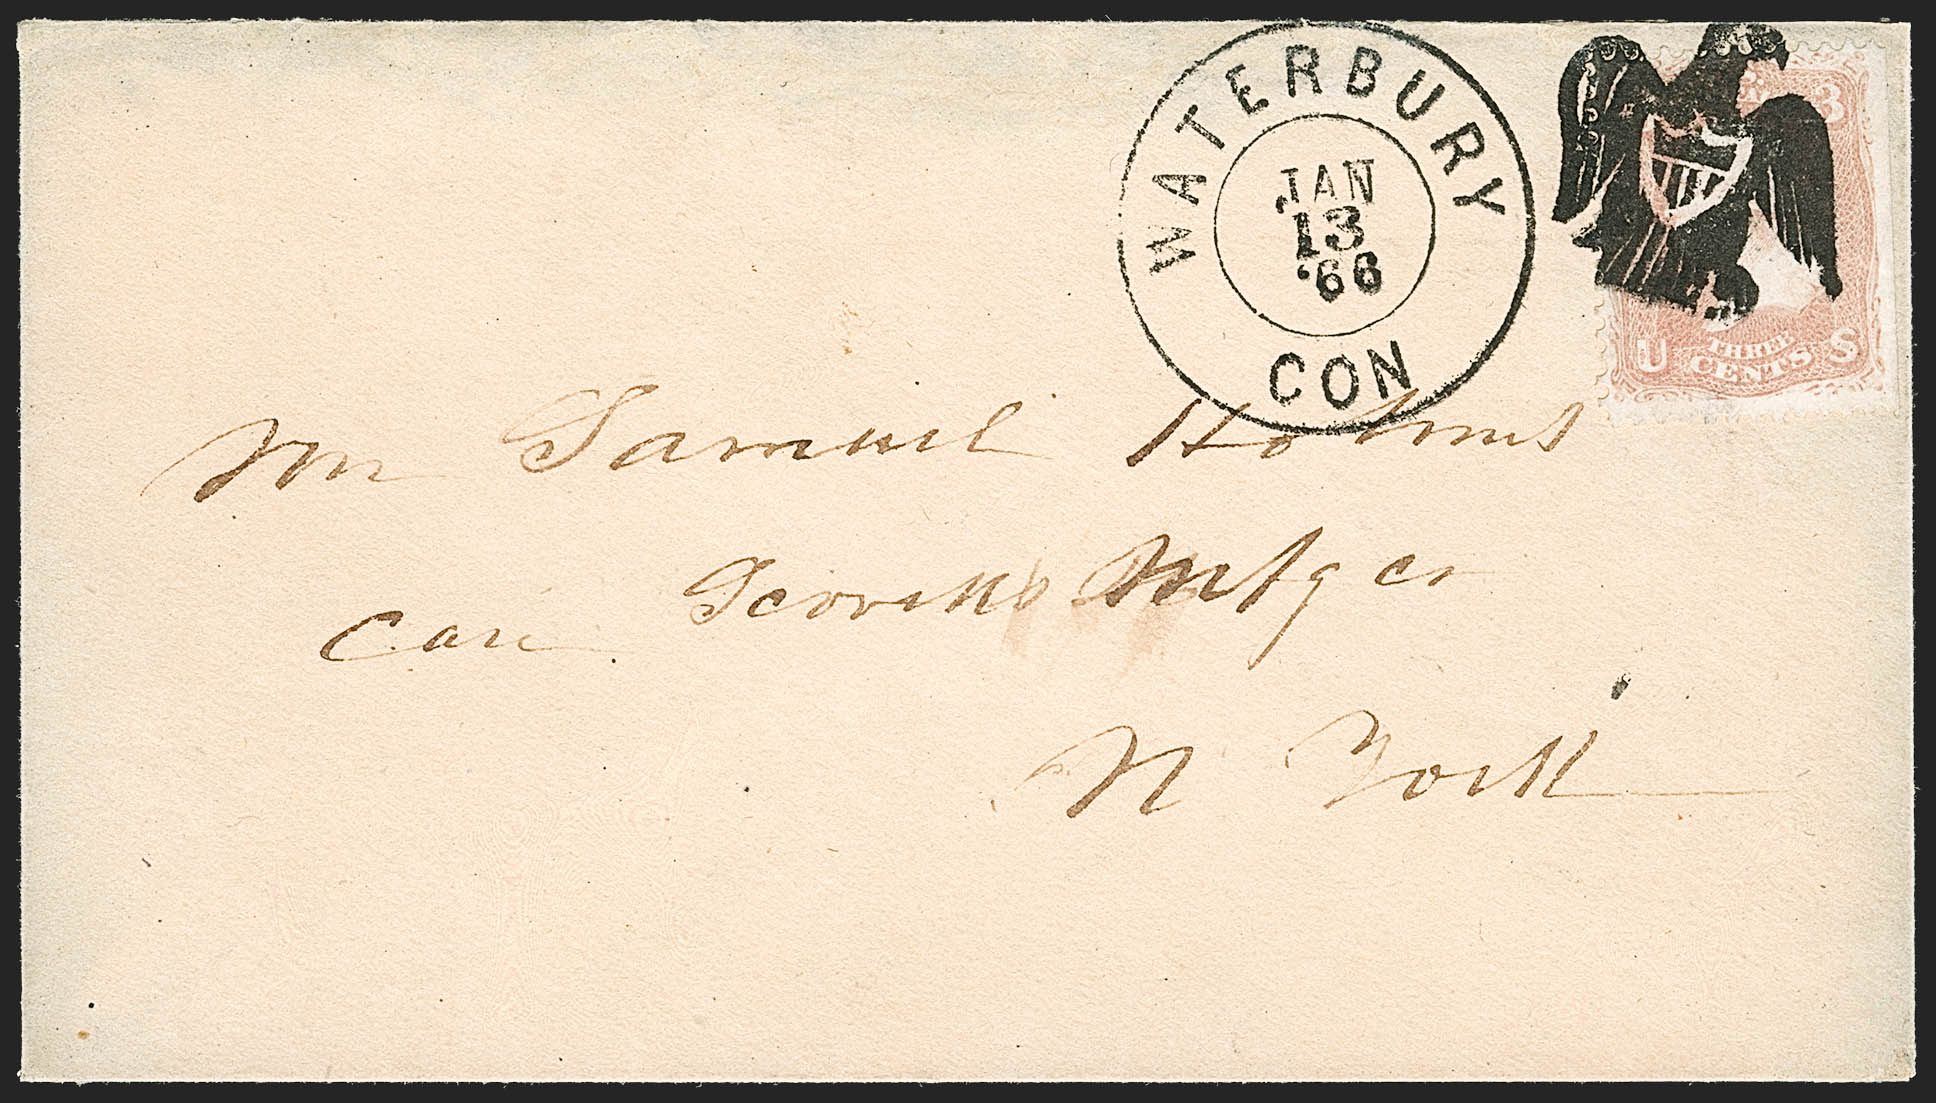 WATERBURY
JAN
13
'66
CON
3
U THREE CENTS S
Mr Samuel Holmes
Care Scovills Mfg Co
N York